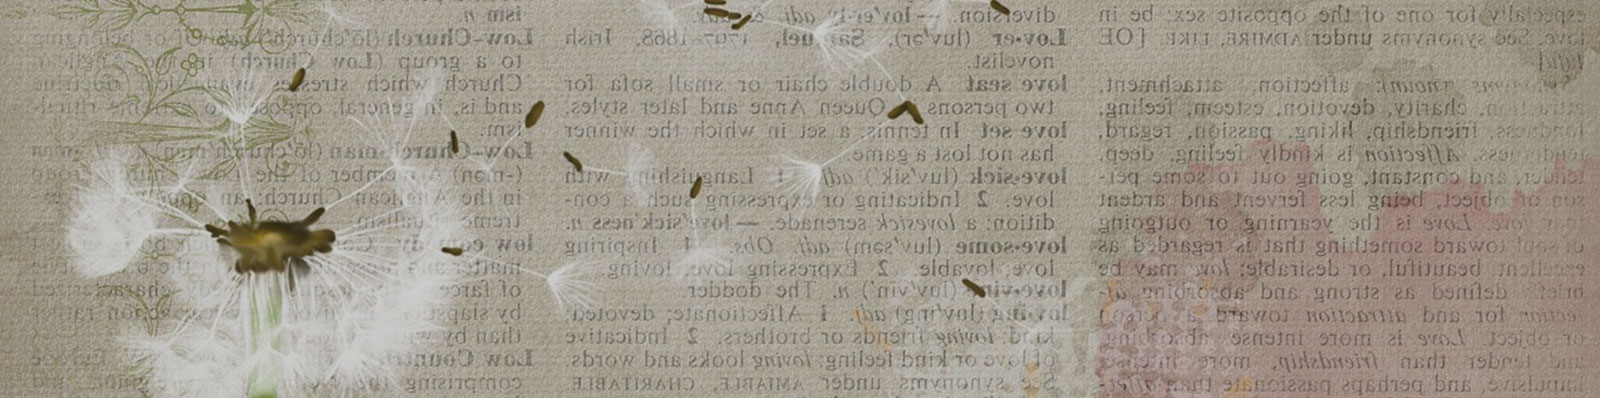 especially for one of the opposite sex; be in
love. See synonyms under ADMIRE, LIKE. [OE
lufu]
Synonyms (noun): affection, attachment,
attraction, charity, devotion, esteem, feeling,
fondness, friendship, liking, passion, regard,
tenderness. Affection is kindly feeling, deep,
tender, and constant, going out to some per-
son or object, being less fervent and ardent
than love. Love is the yearning or outgoing
of soul toward something that is regarded as
excellent, beautiful, or desirable; love may be
briefly defined as strong and absorbing af-
fection for and attraction toward a person
or object. Love is more intense, absorbing,
and tender than friendship, more intense,
impulsive, and perhaps passionate than affec-
diversion. — lov'er·ly adj. & adv.
Lov·er (luv'ər), Samuel, 1797–1868, Irish
novelist.
love seat A double chair or small sofa for
two persons Queen Anne and later styles.
love set In tennis, a set in which the winner
has not lost a game.
love·sick (luv'sik') adj. 1 Languishing with
love. 2 Indicating or expressing such a con-
dition: a lovesick serenade. — love'sick'ness n.
love·some (luv'səm) adj. Obs. 1 Inspiring
love; lovable. 2 Expressing love; loving.
love-vine (luv'vin') n. The dodder.
lov·ing (luv'ing) adj. 1 Affectionate; devoted;
kind: loving friends or brothers. 2 Indicative
of love or kind feeling: loving looks and words.
See synonyms under AMIABLE, CHARITABLE.
ism n.
Low-Church (lō'chûrch') Of or belonging
to a group (Low Church) in the Anglican
Church which stresses evangelical doctrine
and is, in general, opposed to extreme
ism.
Low-Church·man (lō'chûrch'mən)
(-mən) A member of the Church group
in the Anglican Church; an
treme
low comedy
of farce characterized
by slapstick
than by
Low Countries
comprising the